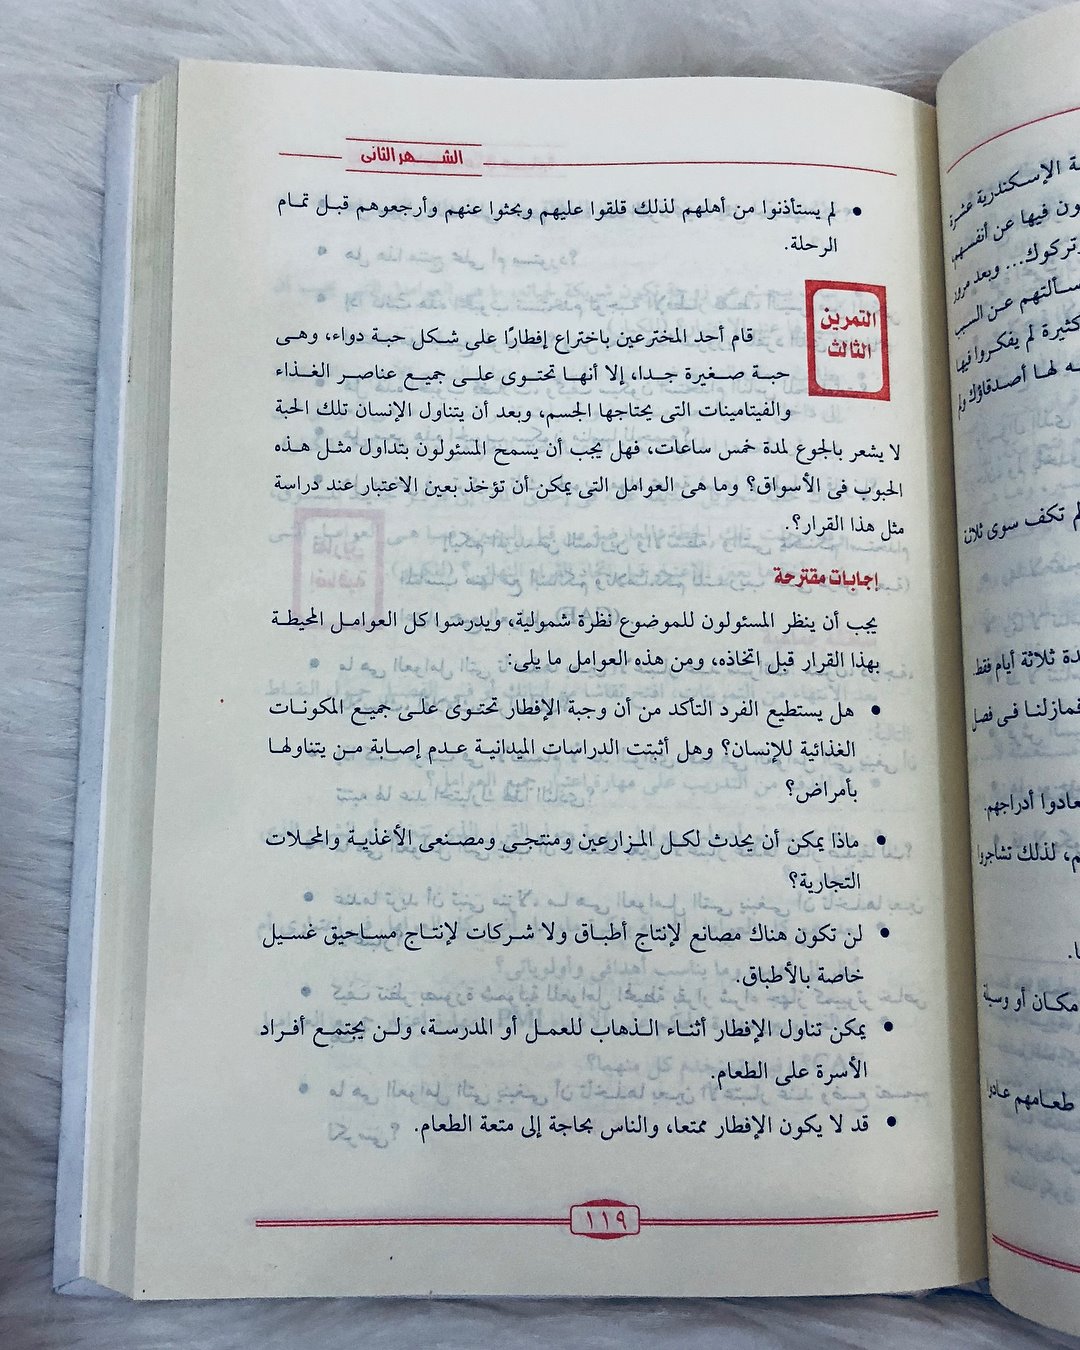 الشهر الثانى
• لم يستأذنوا من أهلهم لذلك قلقوا عليهم وبحثوا عنهم وأرجعوهم قبل تمام
الرحلة.
التمرين
الثالث
قام أحد المخترعين باختراع إفطارًا على شكل حبة دواء، وهى
حبة صغيرة جدا، إلا أنها تحتوى على جميع عناصر الغذاء
والفيتامينات التى يحتاجها الجسم، وبعد أن يتناول الإنسان تلك الحبة
لا يشعر بالجوع لمدة خمس ساعات، فهل يجب أن يسمح المسئولون بتداول مثل هذه
الحبوب فى الأسواق؟ وما هى العوامل التى يمكن أن تؤخذ بعين الاعتبار عند دراسة
مثل هذا القرار؟.
إجابات مقترحة
يجب أن ينظر المسئولون للموضوع نظرة شمولية، ويدرسوا كل العوامل المحيطة
بهذا القرار قبل اتخاذه، ومن هذه العوامل ما يلى:
• هل يستطيع الفرد التأكد من أن وجبة الإفطار تحتوى على جميع المكونات
الغذائية للإنسان؟ وهل أثبتت الدراسات الميدانية عدم إصابة من يتناولها
بأمراض؟
• ماذا يمكن أن يحدث لكل المزارعين ومنتجى ومصنعى الأغذية والمحلات
التجارية؟
• لن تكون هناك مصانع لإنتاج أطباق ولا شركات لإنتاج مساحيق غسيل
خاصة بالأطباق.
• يمكن تناول الإفطار أثناء الذهاب للعمل أو المدرسة، ولن يجتمع أفراد
الأسرة على الطعام.
• قد لا يكون الإفطار ممتعا، والناس بحاجة إلى متعة الطعام.
١١٩
الإسكندرية عشرة
فيها عن أنفسهم
وبعد مرور
سألتهم عن السبب
كثيرة لم يفكروا فيها
لها أصدقاؤك ولم
لم تكف سوى ثلاثة
ثلاثة أيام فقط
فمازلنا فى فصل
أدراجهم.
لذلك تشاجروا
مكان أو وسيلة
طعامهم عادوا